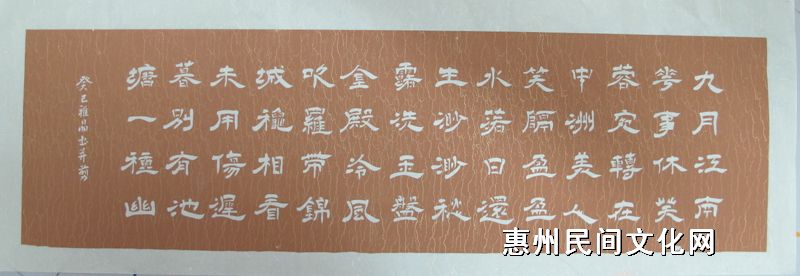 九月江南
華事休芙
蓉宛轉在
中洲美人
笑隔盈盈
水落日還
生渺渺愁
露洗玉盤
金殿冷風
吹羅帶錦
城龝相看
未用傷遲
暮別有池
塘一種幽
癸巳雅书并剪
惠州民间文化网